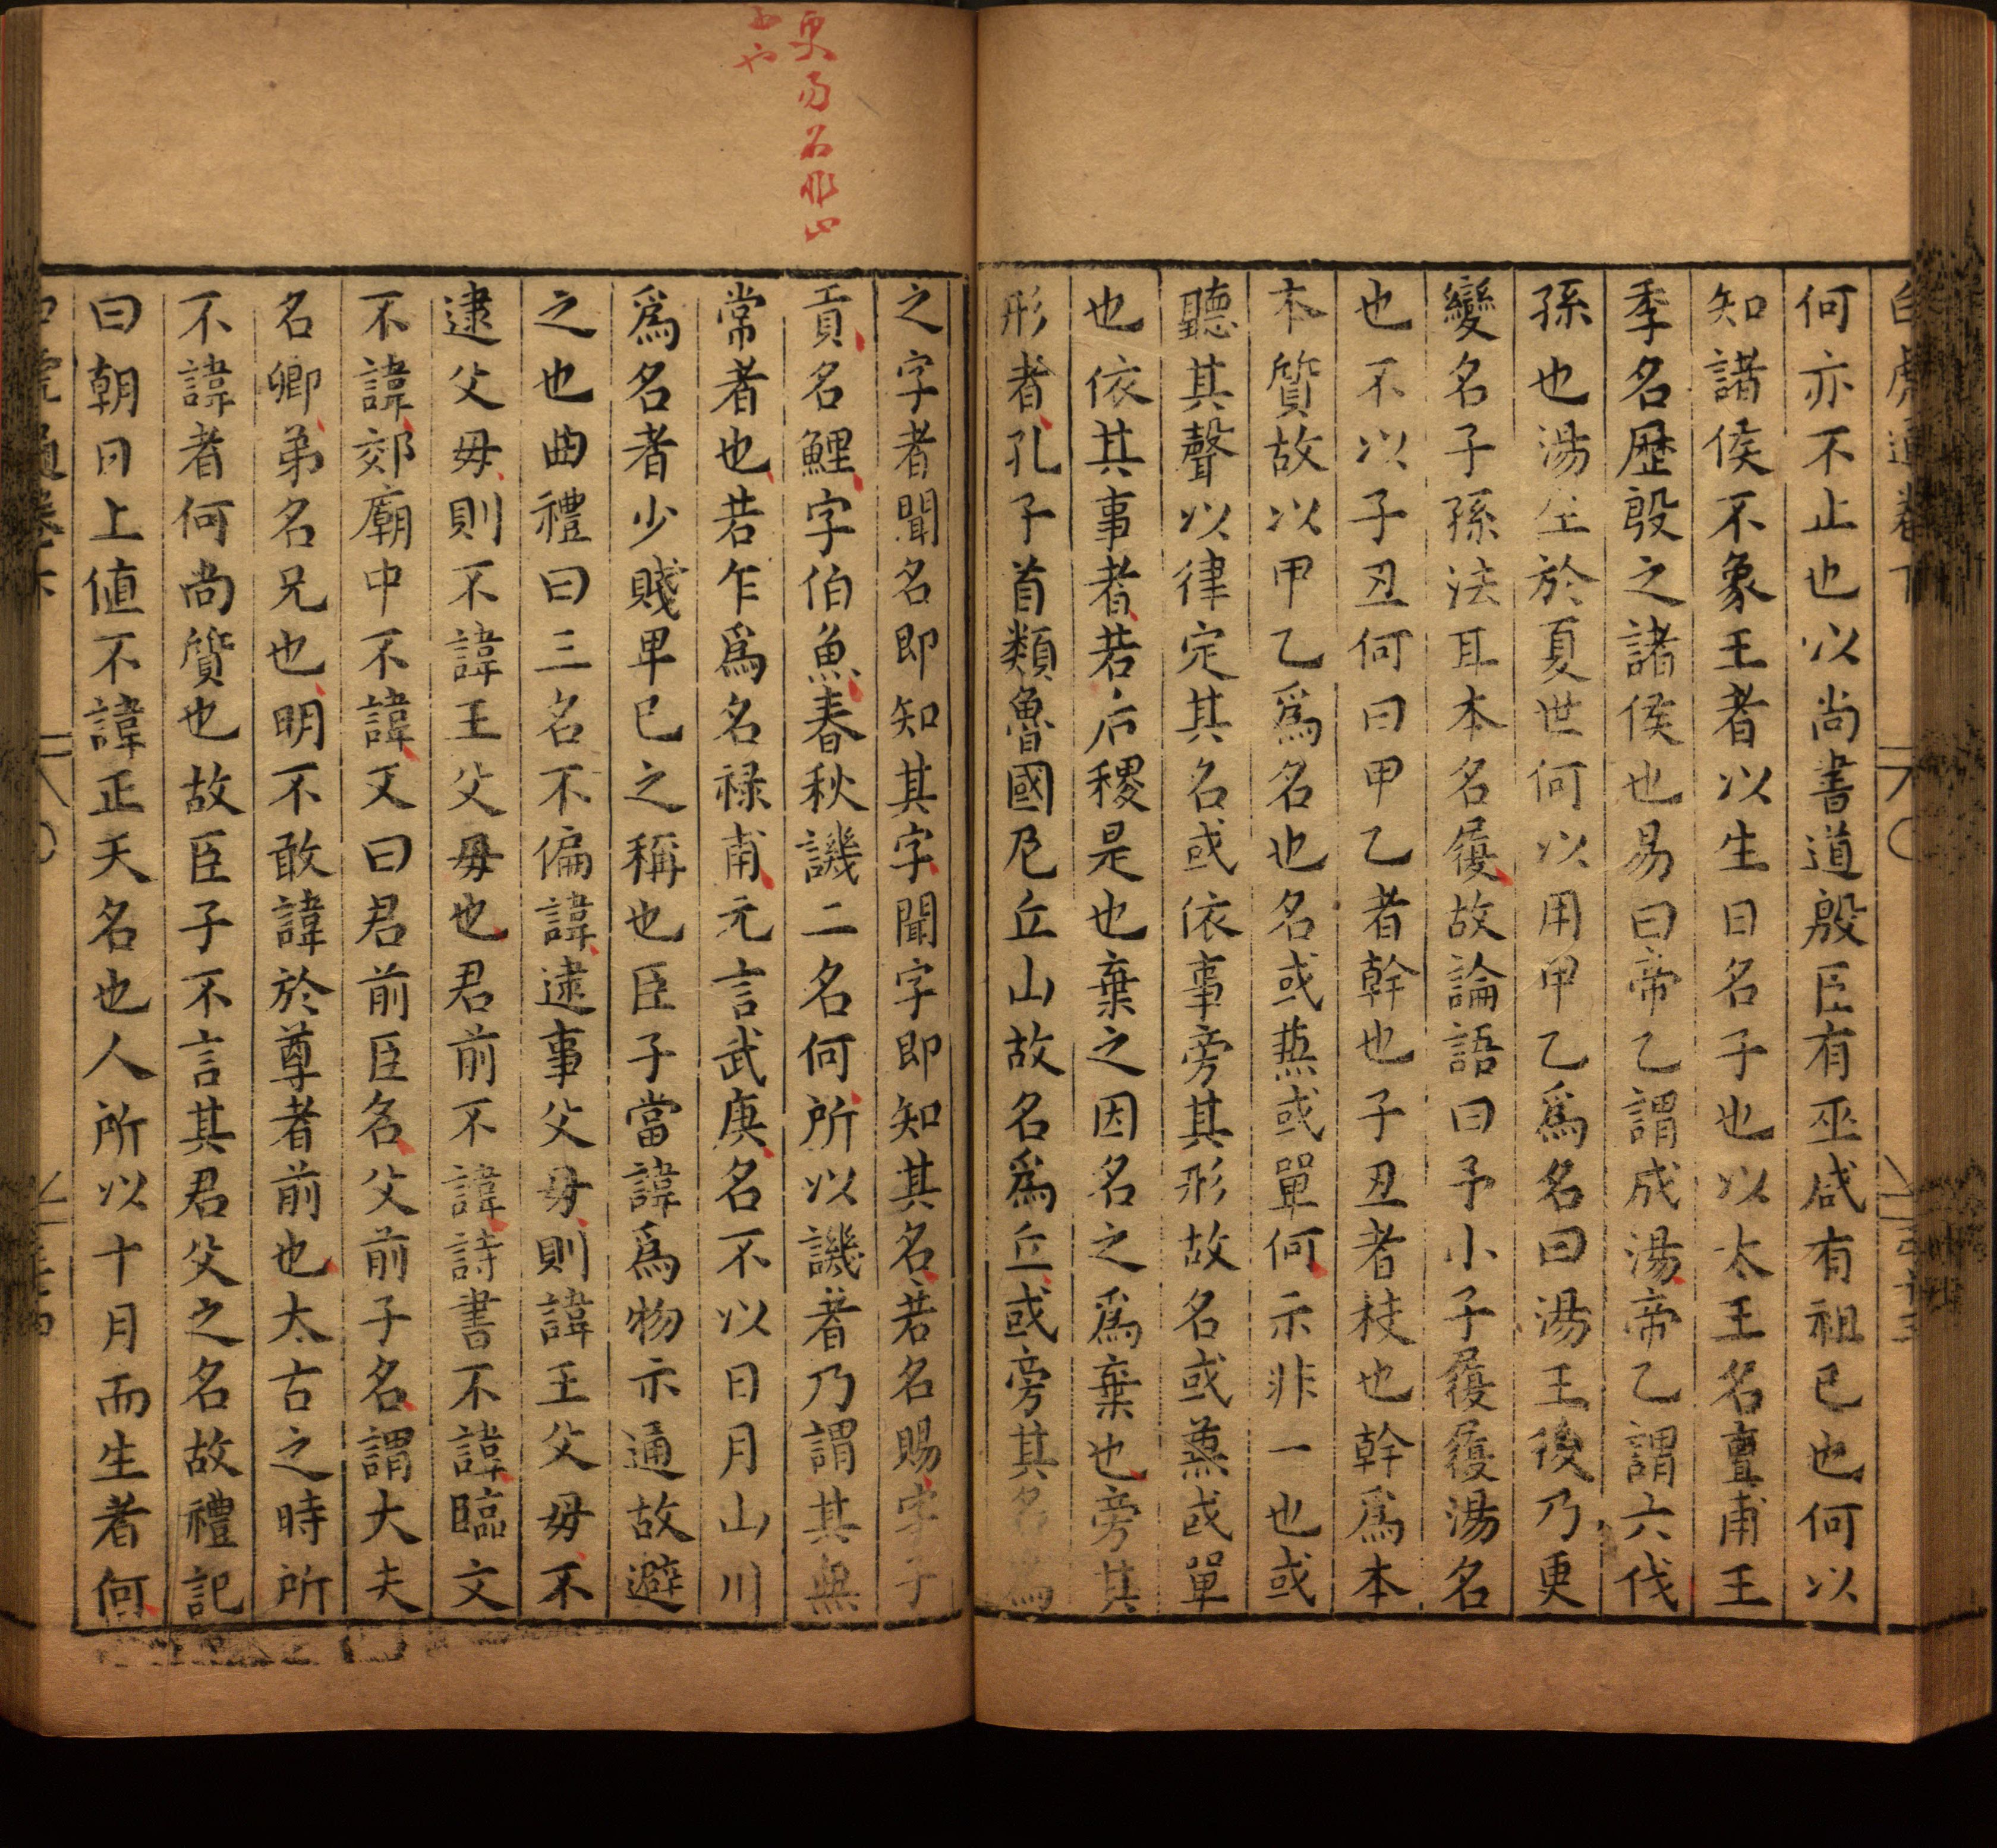 白虎通卷下
何亦不止也以尚書道殷臣有巫咸有祖已也何以
知諸侯不象王者以生日名子也以太王名亶甫王
季名歷殷之諸侯也易曰帝乙謂成湯帝乙謂六代
孫也湯生於夏世何以用甲乙爲名曰湯王後乃更
變名子孫法耳本名履故論語曰予小子履履湯名
也不以子丑何曰甲乙者幹也子丑者枝也幹爲本
本質故以甲乙爲名也名或𠔥或單何示非一也或
聽其聲以律定其名或依事旁其形故名或𠔥或單
也依其事者若后稷是也棄之因名之爲棄也旁其
形者孔子首類魯國尼丘山故名爲丘或旁其名爲
之字者聞名即知其字聞字即知其名若名賜字子
貢名鯉字伯魚春秋譏二名何所以譏者乃謂其無
常者也若乍爲名祿甫元言武庚名不以日月山川
爲名者少賤卑己之稱也臣子當諱爲物示通故避
之也曲禮曰二名不偏諱逮事父母則諱王父母不
逮父母則不諱王父母也君前不諱詩書不諱臨文
不諱郊廟中不諱又曰君前臣名父前子名謂大夫
名卿弟名兄也明不敢諱於尊者前也太古之時所
不諱者何尚質也故臣子不言其君父之名故禮記
曰朝日上値不諱正天名也人所以十月而生者何
更易名非